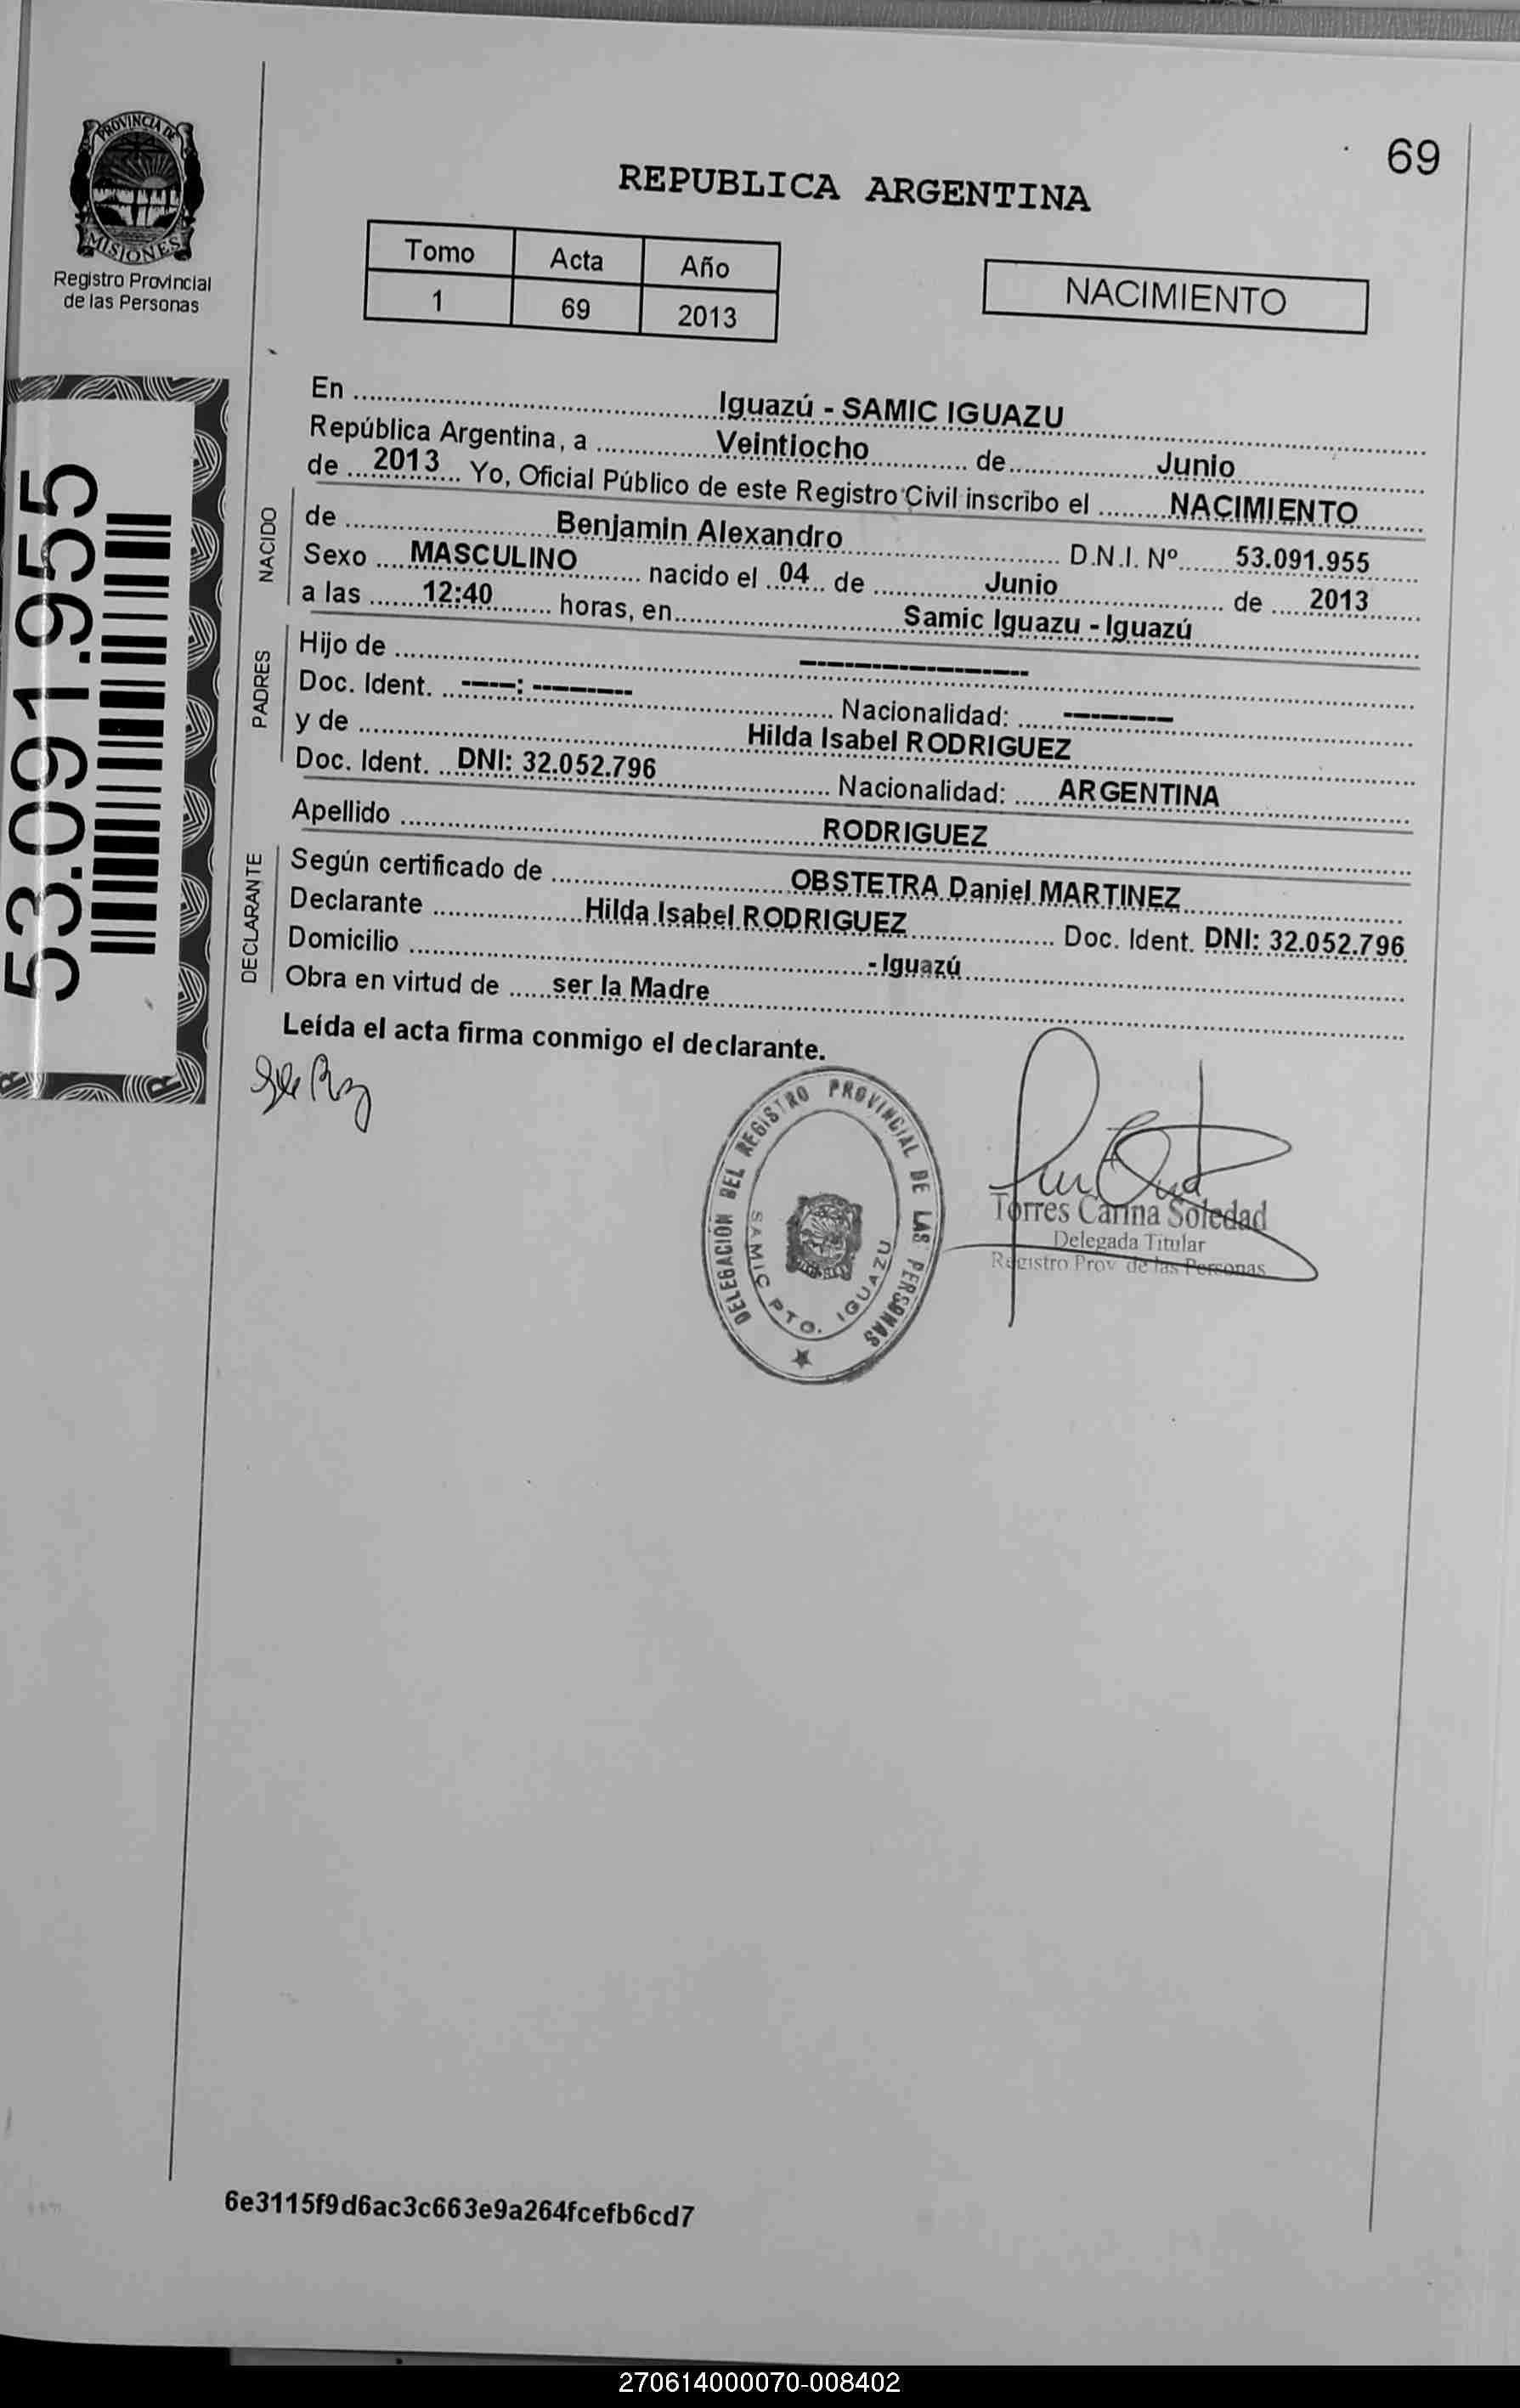 69
PROVINCIA DE
MISIONES
Registro Provincial
de las Personas
REPUBLICA ARGENTINA
Tomo Acta Año
1 69 2013
NACIMIENTO
53.091.955
En Iguazú - SAMIC IGUAZU
República Argentina, a Veintiocho de Junio
de 2013 Yo, Oficial Público de este Registro Civil inscribo el NACIMIENTO
NACIDO
de Benjamin Alexandro D.N.I. Nº 53.091.955
Sexo MASCULINO nacido el 04 de Junio de 2013
a las 12:40 horas, en Samic Iguazu - Iguazú
PADRES
Hijo de --------------------
Doc. Ident. -----: --------- Nacionalidad: ----------
y de Hilda Isabel RODRIGUEZ
Doc. Ident. DNI: 32.052.796 Nacionalidad: ARGENTINA
Apellido RODRIGUEZ
DECLARANTE
Según certificado de OBSTETRA Daniel MARTINEZ
Declarante Hilda Isabel RODRIGUEZ Doc. Ident. DNI: 32.052.796
Domicilio - Iguazú
Obra en virtud de ser la Madre
Leída el acta firma conmigo el declarante.
DELEGACION DEL REGISTRO PROVINCIAL DE LAS PERSONAS
SAMIC PTO. IGUAZU
Torres Carina Soledad
Delegada Titular
Registro Prov de las Personas
6e3115f9d6ac3c663e9a264fcefb6cd7
270614000070-008402